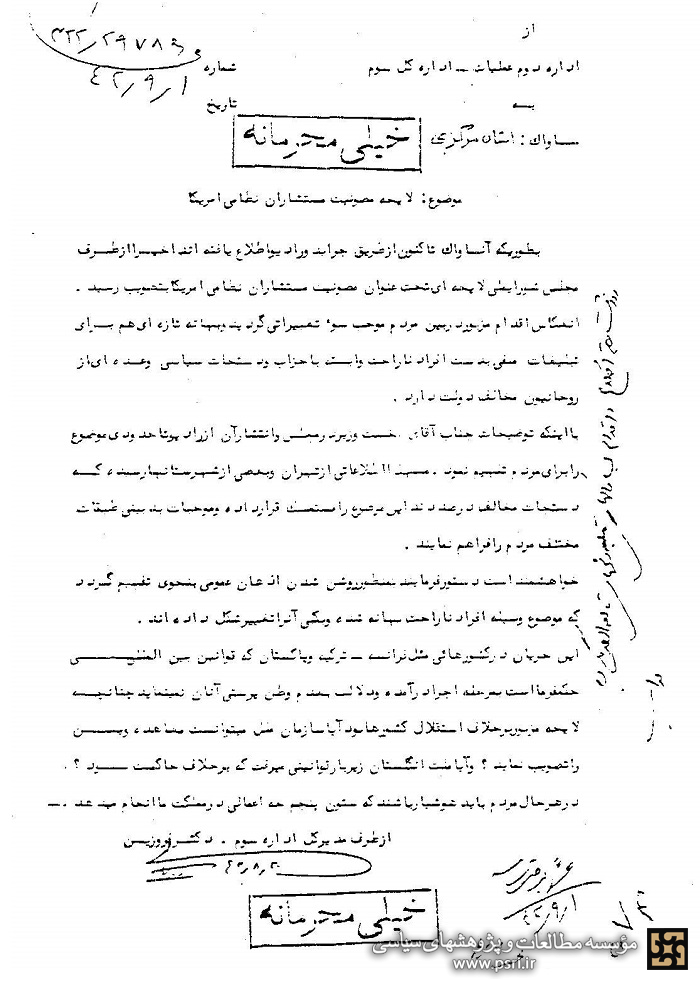 از
اداره دوم عملیات – اداره کل سوم
شماره ۳۲۲/۲۹۷۸۶
بــه
تاریخ ۴۳/۹/۱
ساواک : استان مرکزی
خیلی محرمانه
موضوع : لایحه مصونیت مستشاران نظامی امریکا
بطوریکه آنساواک تاکنون از طریق جراید و رادیو اطلاع یافته اند اخیرا از طرف
مجلس شورایملی لایحه ای تحت عنوان مصونیت مستشاران نظامی امریکا بتصویب رسید .
انعکاس اقدام مزبور در بین مردم موجب سوء تعبیراتی گردیده و بهانه تازه ای هم برای
تبلیغات منفی بدست افراد ناراحت وابسته با حزاب و دستجات سیاسی و عده ای از
روحانیون مخالف دولت داد .
با اینکه توضیحات جناب آقای نخست وزیر در مجلس و انتشار آن از رادیو تا حدودی موضوع
را برای مردم تفهیم نمود . اطلاعاتی از تهران و بعضی از شهرستانها رسیده کـه
دستجات مخالف در صددند این موضوع را مستمسک قرار داده و موجبات بدبینی طبقات
مختلف مردم را فراهم نمایند .
خواهشمند است دستور فرمایند بمنظور روشن شدن اذهان عمومی بنحوی تفهیم گردد
که موضوع وسیله افراد ناراحت بهانه شده و بکلی آنرا تغییر شکل داده اند .
این جریان در کشورهائی مثل فرانسه – ترکیه و پاکستان که قوانین بین المللـــی
حکمفرما است بمرحله اجرا درآمده و دلالت بعدم وطن پرستی آنان نمینماید چنانچـه
لایحه مزبور برخلاف استقلال کشورها بود آیا سازمان ملل میتوانست معاهده ویـــن
را تصویب نماید ؟ و آیا ملت انگلستان زیر بار قوانینی میرفت که برخلاف حاکمیت بـــود ؟ .
در هر حال مردم باید هوشیار باشند که ستون پنجم چه اعمالی در مملکت ما انجام میدهد .
از طرف مدیر کل اداره سوم .
خیلی محرمانه
۴۳/۹/۱
مؤسسه مطالعات و پژوهشهای سیاسی
www.psri.ir